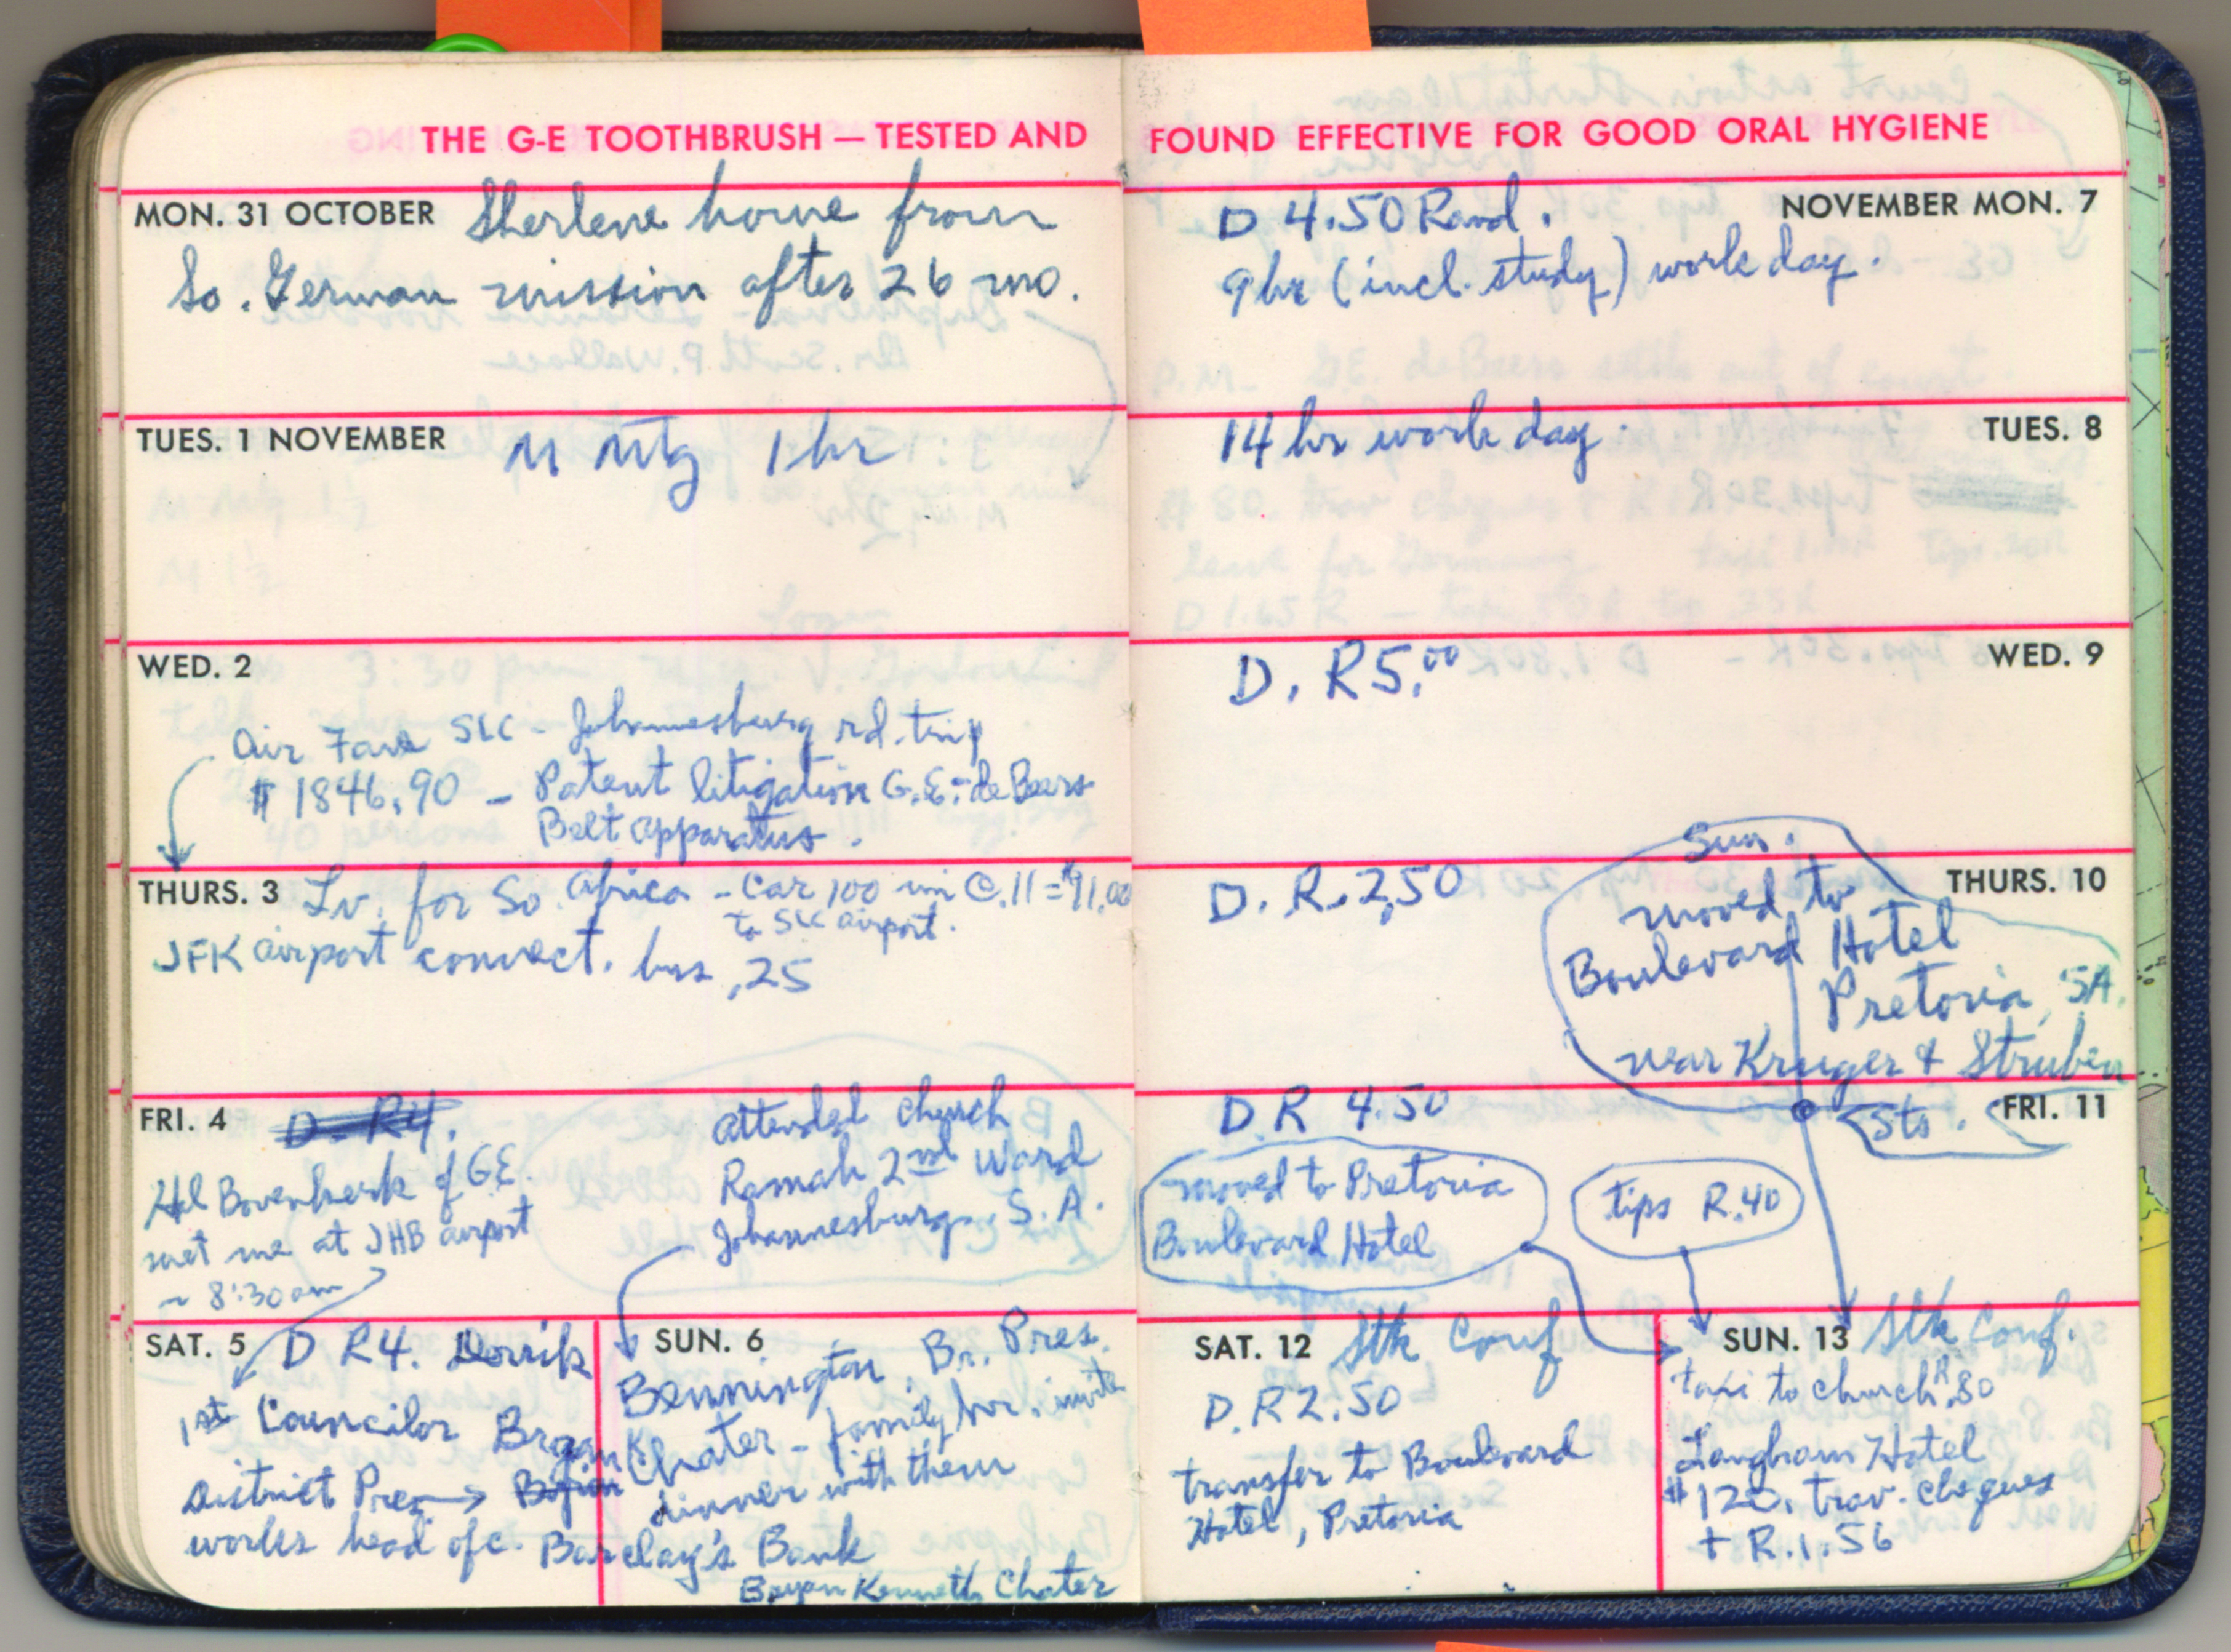 THE G-E TOOTHBRUSH — TESTED AND
MON. 31 OCTOBER Sherlene home from
So. German mission after 26 mo.
TUES. 1 NOVEMBER M Mtg 1 hr
WED. 2
Air Fare SLC - Johannesburg rd. trip
$1846.90 - Patent litigation G.E.-de Beers
Belt apparatus.
THURS. 3 Lv. for So. Africa - Car 100 mi @ .11 = $11.00
to SLC airport.
JFK airport connect. bus .25
FRI. 4 D. R4.
Hal Bovenkerk of GE
met me at JHB airport
~ 8:30 am
Attended church
Ramah 2nd Ward
Johannesburg, S.A.
SAT. 5 D R4. Derrik
1st Councilor Bryan K.
District Pres →
works head ofc. Barclay's Bank
SUN. 6
Bennington, Br. Pres.
Chater - family hr. invite
dinner with them
Bryan Kenneth Chater
FOUND EFFECTIVE FOR GOOD ORAL HYGIENE
NOVEMBER MON. 7
D 4.50 Rand.
9 hr (incl. study) work day.
TUES. 8
14 hr work day.
WED. 9
D. R5.00
THURS. 10
D. R. 2.50
Sun.
moved to
Boulevard Hotel
Pretoria, SA.
near Kruger & Struben
Sts.
FRI. 11
D. R 4.50
moved to Pretoria
Boulevard Hotel
tips R.40
SAT. 12 Stk Conf
D. R2.50
transfer to Boulevard
Hotel, Pretoria
SUN. 13 Stk Conf.
taxi to church R.80
Langham Hotel
$120. trav. cheques
+ R. 1.56